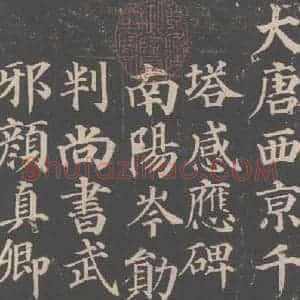 大唐西京千
塔感應碑
南陽岑勛
判尚書武
邪顏真卿
Shufaziliao.COM